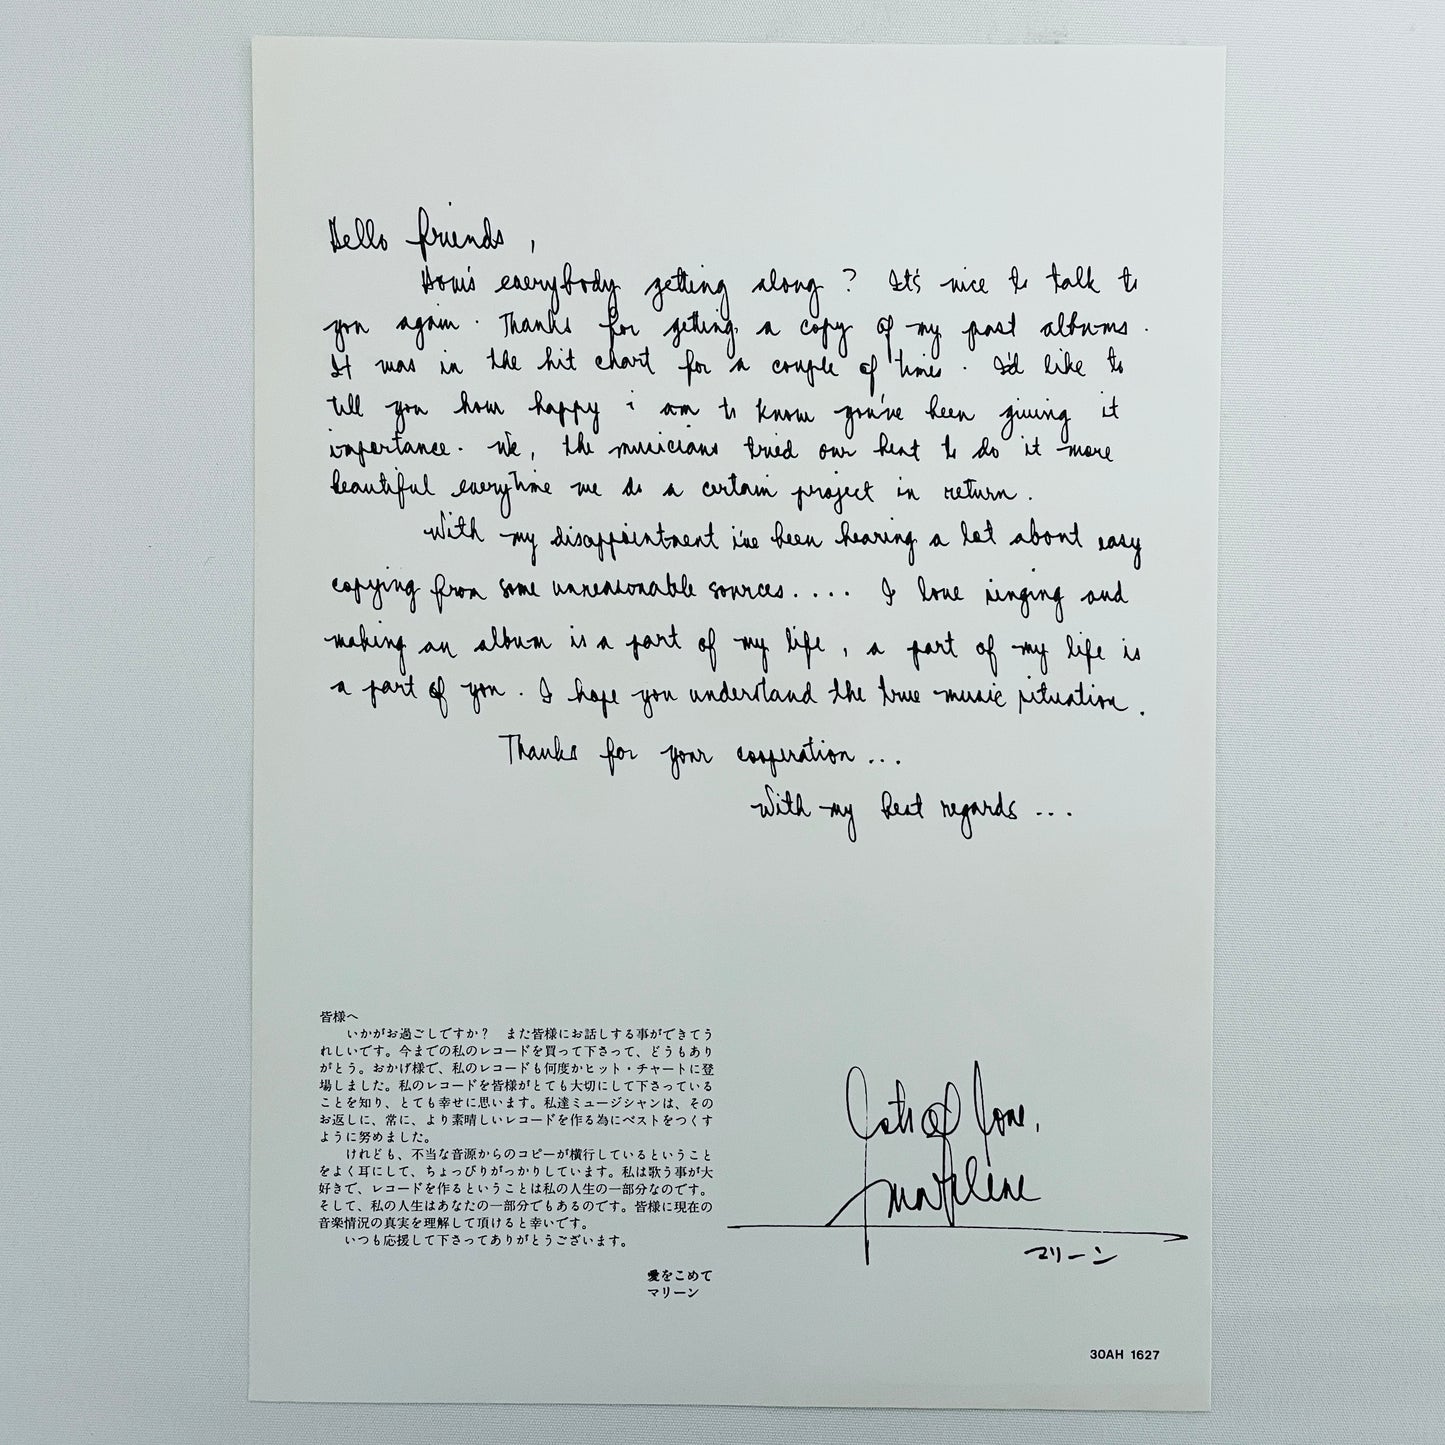 Hello friends,
How's everybody getting along? It's nice to talk to
you again. Thanks for getting a copy of my past albums.
It was in the hit chart for a couple of times. I'd like to
tell you how happy i am to know you've been giving it
importance. We, the musicians tried our best to do it more
beautiful everytime we do a certain project in return.
With my disappointment i've been hearing a lot about easy
copying from some unreasonable sources.... I love singing and
making an album is a part of my life, a part of my life is
a part of you. I hope you understand the true music situation.
Thanks for your cooperation...
With my best regards...
皆様へ
いかがお過ごしですか? また皆様にお話しする事ができてう
れしいです。今までの私のレコードを買って下さって、どうもあり
がとう。おかげ様で、私のレコードも何度かヒット・チャートに登
場しました。私のレコードを皆様がとても大切にして下さっている
ことを知り、とても幸せに思います。私達ミュージシャンは、その
お返しに、常に、より素晴しいレコードを作る為にベストをつくす
ように努めました。
けれども、不当な音源からのコピーが横行しているということ
をよく耳にして、ちょっぴりがっかりしています。私は歌う事が大
好きで、レコードを作るということは私の人生の一部分なのです。
そして、私の人生はあなたの一部分でもあるのです。皆様に現在の
音楽情況の真実を理解して頂けると幸いです。
いつも応援して下さってありがとうございます。
愛をこめて
マリーン
Lots of love,
marlene
マリーン
30AH 1627